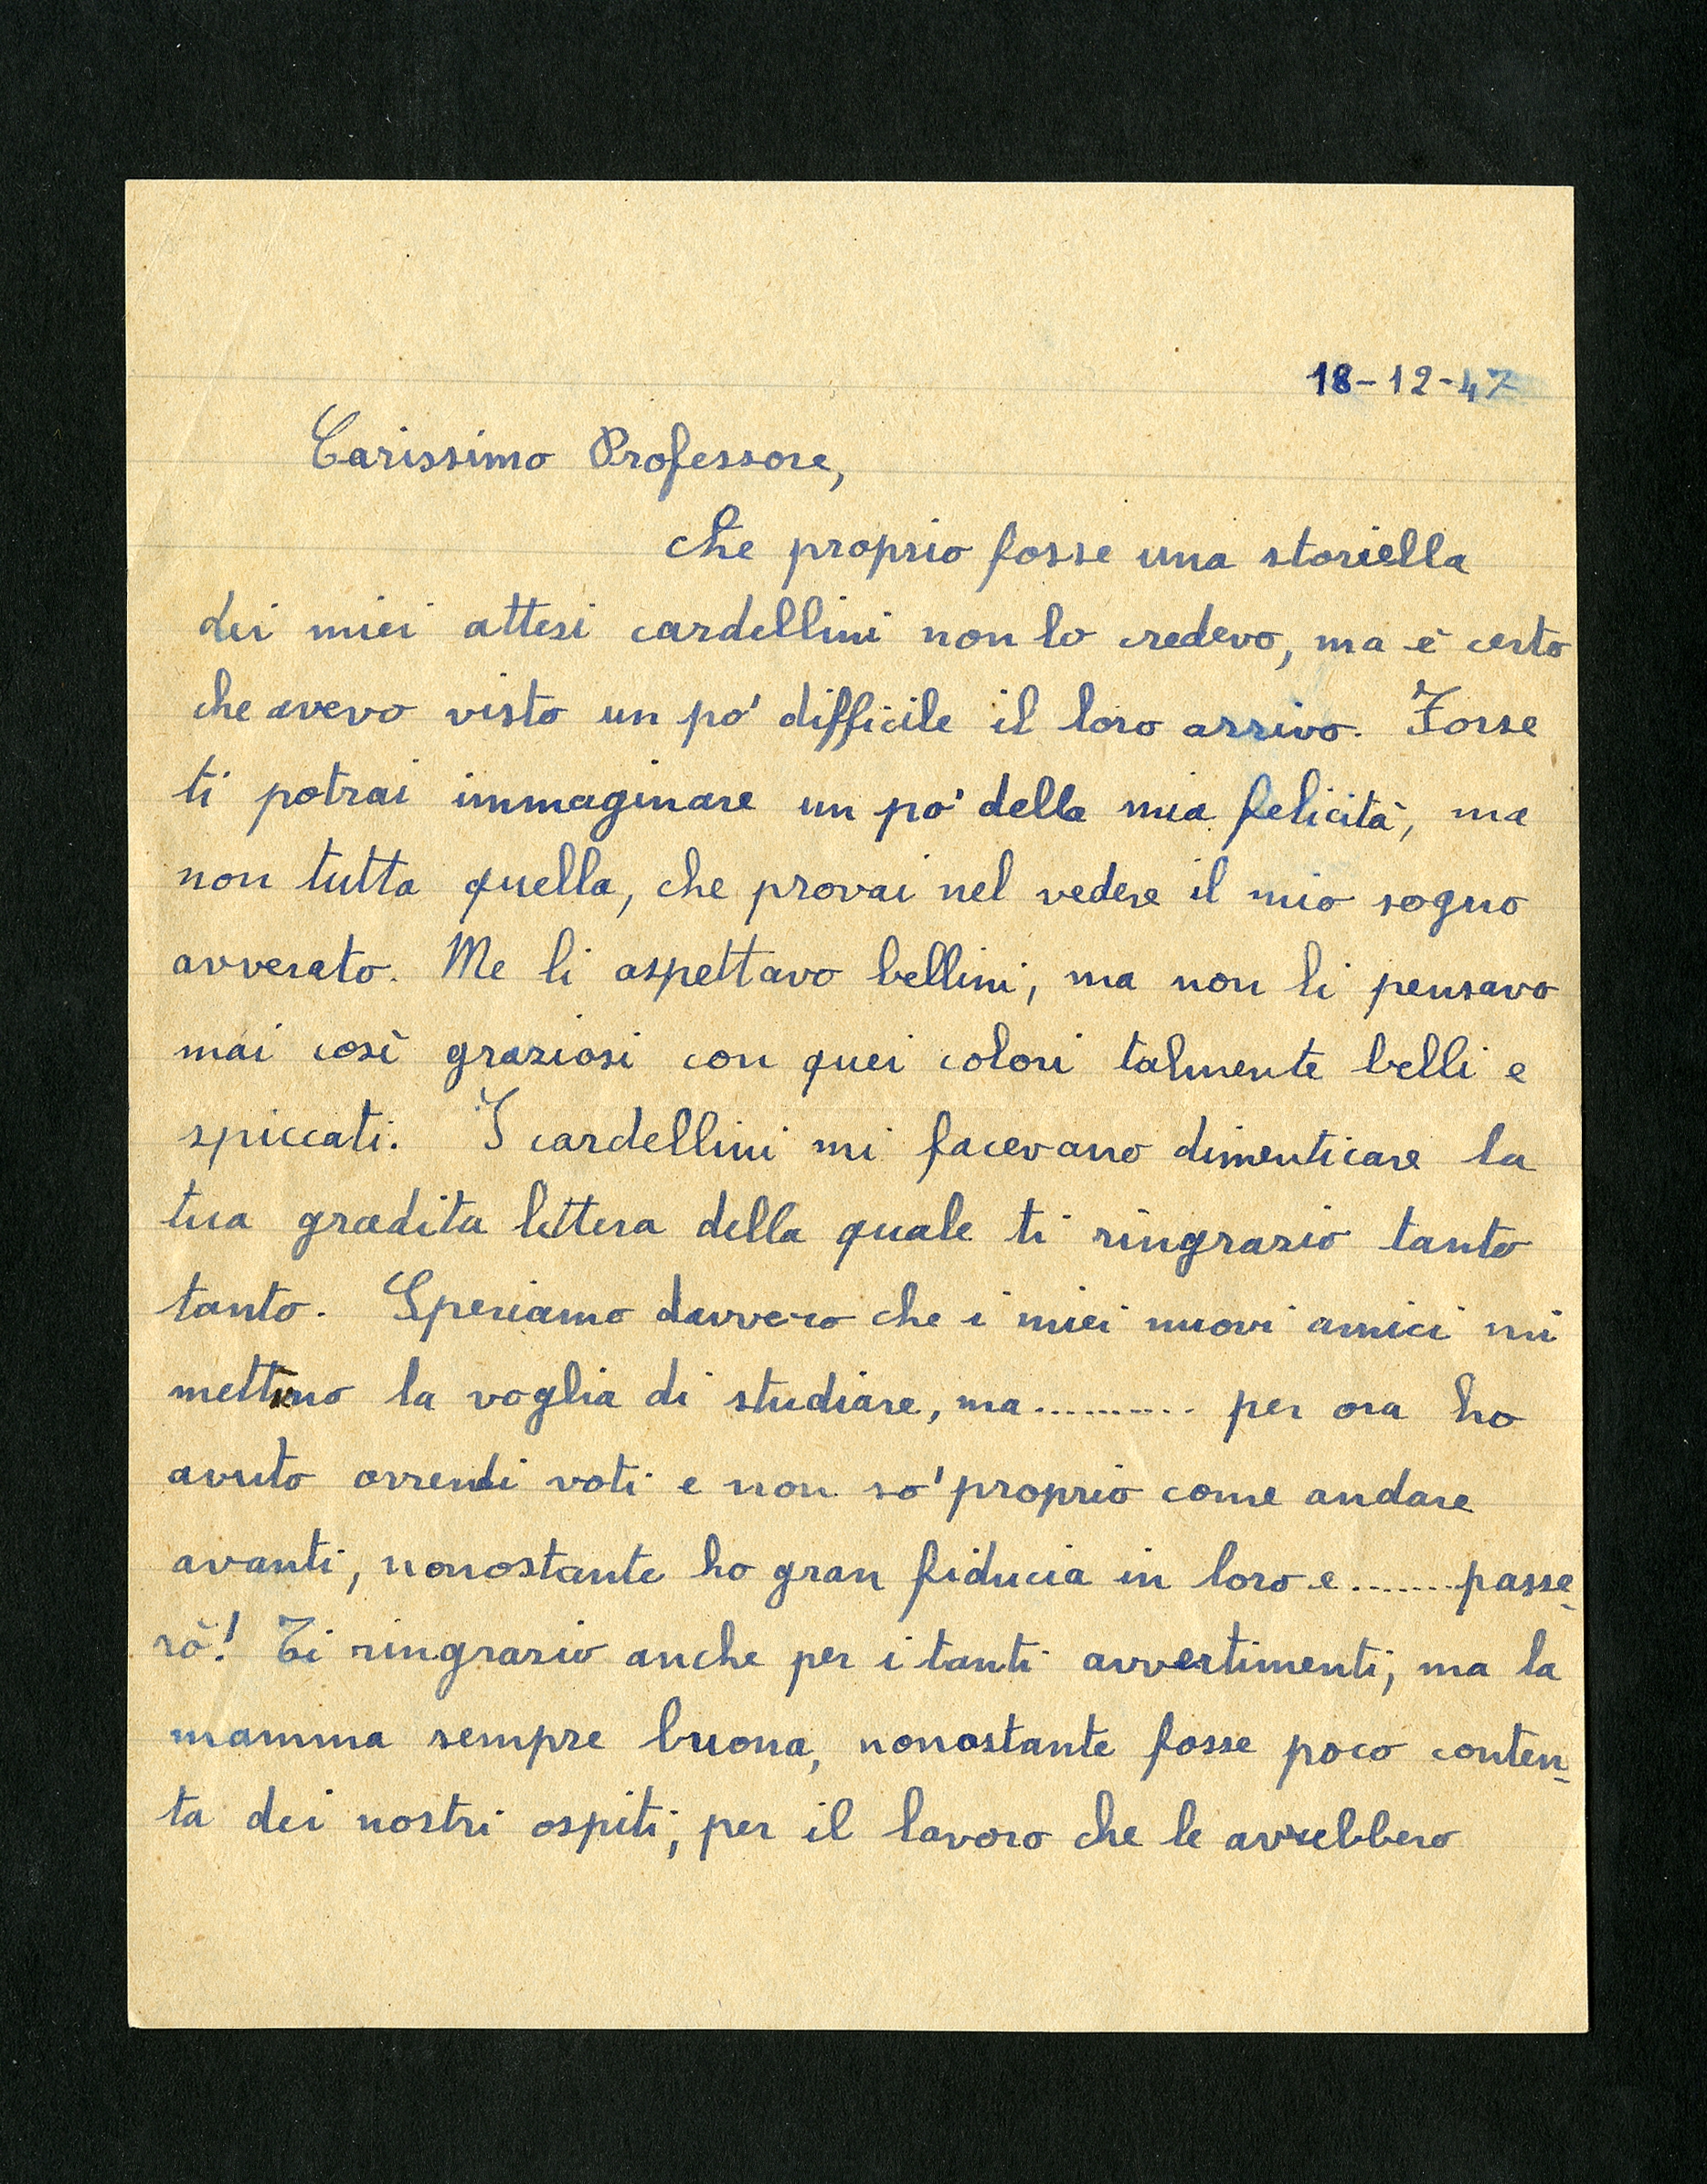 18-12-47
Carissimo Professore,
che proprio fosse una storiella
dei miei attesi cardellini non lo credevo, ma è certo
che avevo visto un po' difficile il loro arrivo. Forse
ti potrai immaginare un po' della mia felicità, ma
non tutta quella, che provai nel vedere il mio sogno
avverato. Me li aspettavo bellini, ma non li pensavo
mai così graziosi con quei colori talmente belli e
spiccati. I cardellini mi facevano dimenticare la
tua gradita lettera della quale ti ringrazio tanto
tanto. Speriamo davvero che i miei nuovi amici mi
mettino la voglia di studiare, ma.......... per ora ho
avuto orrendi voti e non so' proprio come andare
avanti, nonostante ho gran fiducia in loro e.......passe-
rò! Ti ringrazio anche per i tanti avvertimenti, ma la
mamma sempre buona, nonostante fosse poco conten-
ta dei nostri ospiti, per il lavoro che le avrebbero